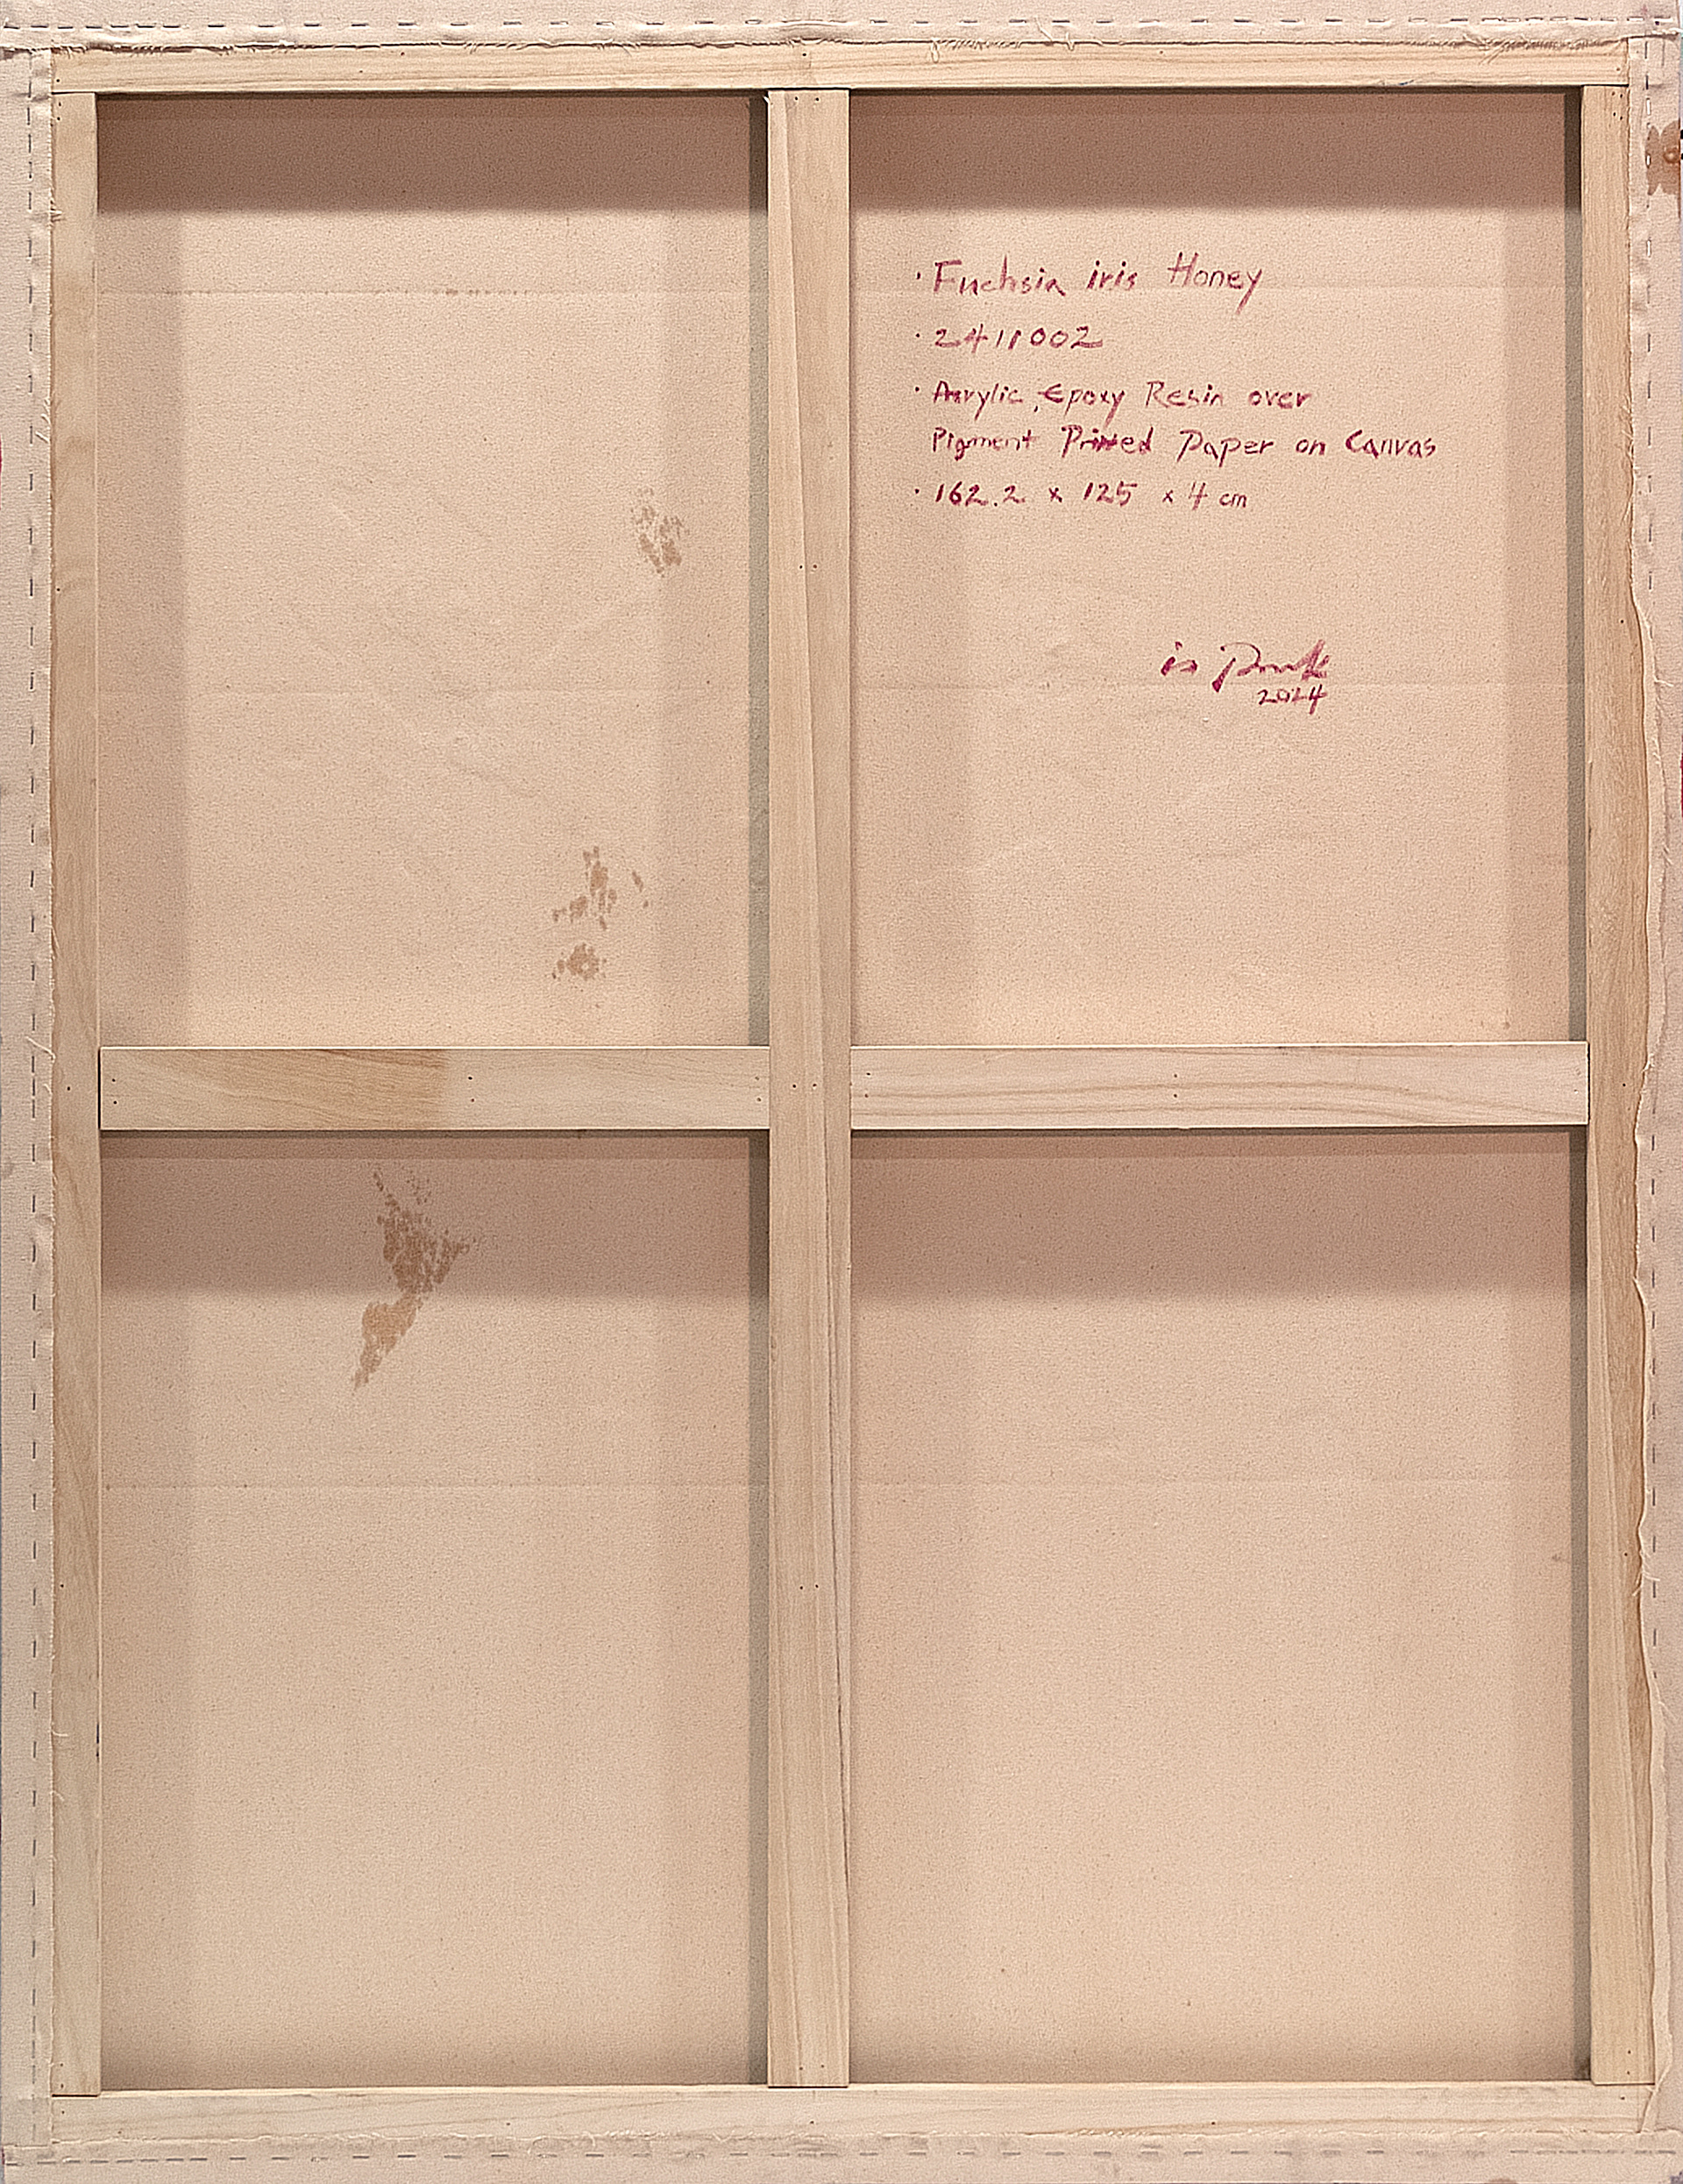 · Fuchsia iris Honey
· 2411002
· Acrylic, Epoxy Resin over
Pigment Printed Paper on Canvas
· 162.2 x 125 x 4 cm
is
2024